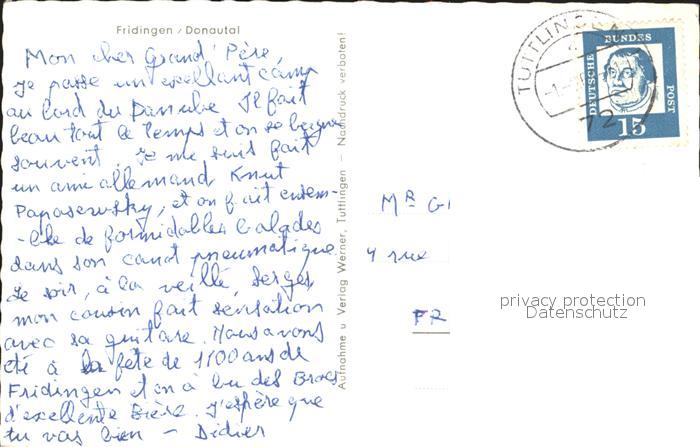 Fridingen / Donautal
Mon cher Grand' Père,
Je passe un excellant camp
au bord du Danube Il fait
beau tout le temps et on se baigne
souvent. Je me suis fait
un ami allemand Knut
et on fait ensem-
-ble de formidables balades
dans son canot pneumatique.
Le soir, à la veillé, Serges,
mon cousin fait sensation
avec sa guitare. Nous avons
été à la fête de 1100 ans de
Fridingen et on a bu des Brocs
d'excellente Bière. J'espère que
tu vas bien - Didier
Aufnahme u Verlag Werner, Tuttlingen - Nachdruck verboten!
TUTTLINGEN
72
DEUTSCHE
BUNDES
POST
15
MR G
4 rue
FR
privacy protection
Datenschutz